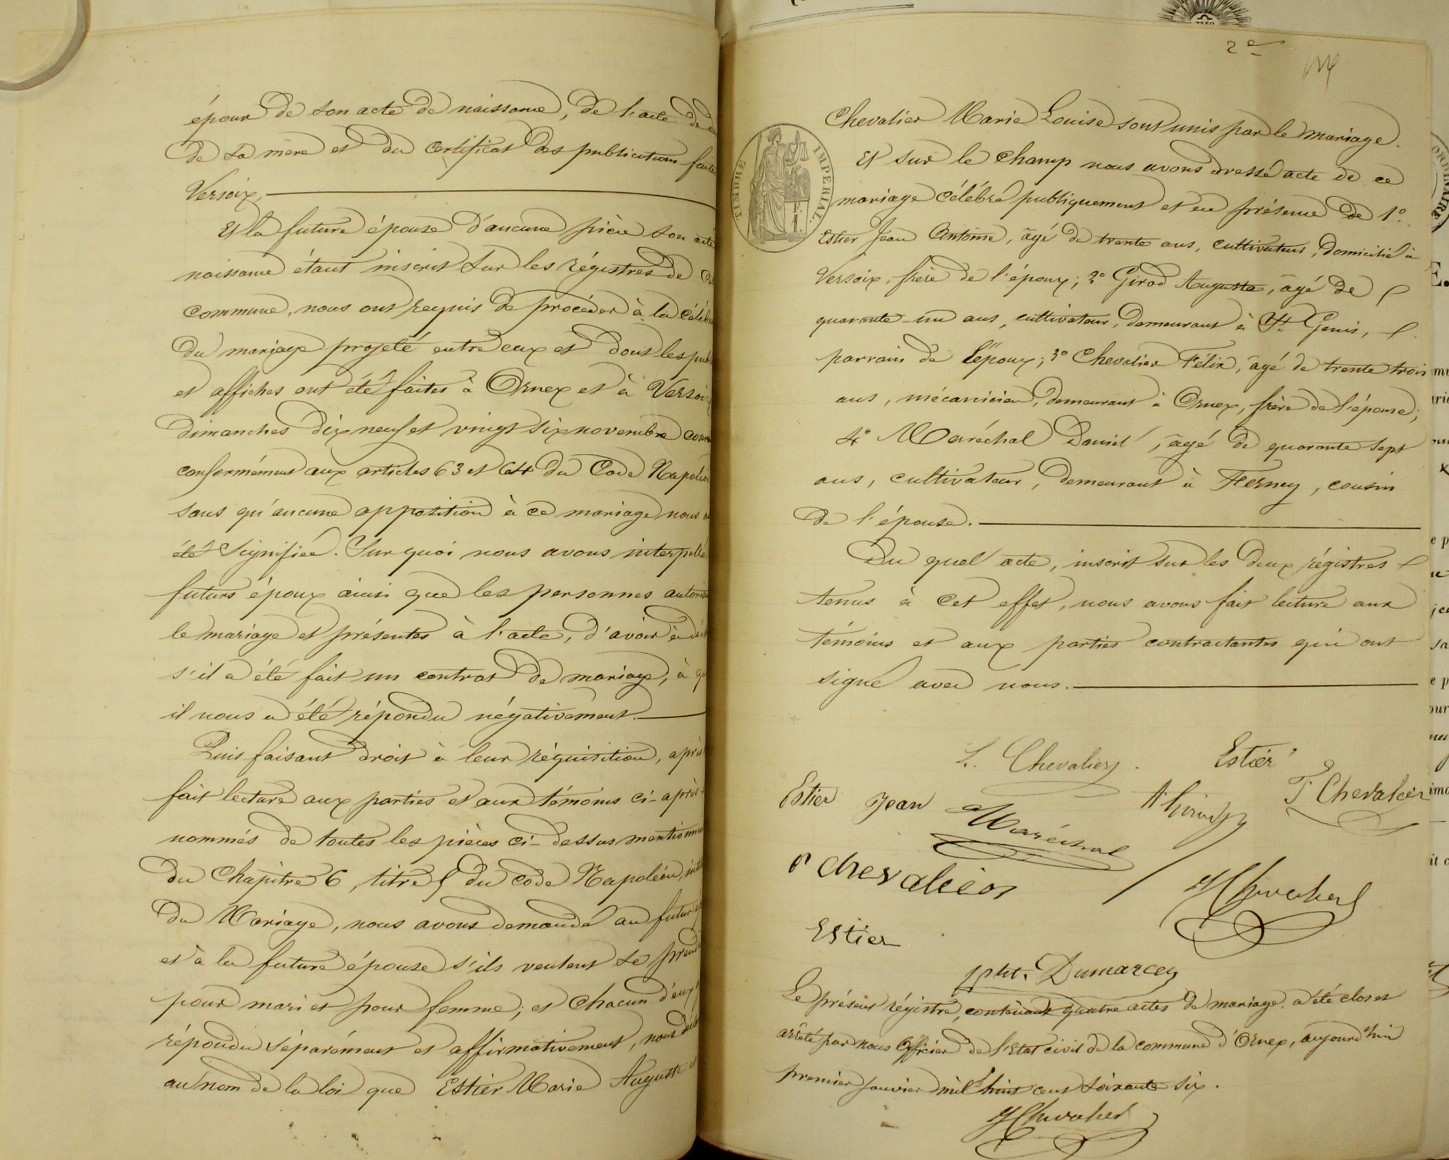 époux de son acte de naissance, de l'acte de
de sa mère et du certificat des publications faites
Versoix,
Et la future épouse d'aucune pièce son acte
naissance étant inscrit sur les régistres de
commune, nous ont requis de procéder à la
du mariage projeté entre eux et dont les
et affiches ont été faites à Ornex et à Versoix
dimanches dix neuf et vingt six novembre
conformément aux articles 63 et 64 du Code Napoléon
sans qu'aucune opposition à ce mariage nous
été signifiée. Sur quoi nous avons interpellé
futurs époux ainsi que les personnes
le mariage et présentes à l'acte, d'avoir à
s'il a été fait un contrat de mariage, à
il nous a été répondu négativement.
Puis faisant droit à leur réquisition, après
fait lecture aux parties et aux témoins ci-après
nommés de toutes les pièces ci-dessus
du chapitre 6, titre 5 du code Napoléon,
du Mariage, nous avons demandé au futur
et à la future épouse s'ils veulent se
pour mari et pour femme, et chacun d'eux
répondu séparément et affirmativement, nous
au nom de la loi que Estier Marie Auguste et
2e
Chevalier Marie Louise sont unis par le mariage.
Et sur le champ nous avons dressé acte de ce
mariage célébré publiquement et en présence de 1°
Estier Jean Antoine, âgé de trente ans, cultivateur, domicilié à
Versoix, frère de l'époux; 2° Girod Auguste, âgé de
quarante-un ans, cultivateur, demeurant à St Genis,
parrain de l'époux; 3° Chevalier Félix, âgé de trente trois
ans, mécanicien, demeurant à Ornex, frère de l'épouse;
4° Maréchal David, âgé de quarante sept
ans, cultivateur, demeurant à Ferney, cousin
de l'épouse.
Du quel acte, inscrit sur les deux régistres
tenus à cet effet, nous avons fait lecture aux
témoins et aux parties contractantes qui ont
signé avec nous.
TIMBRE IMPERIAL.
L. Chevalier. Estier
Estier Jean Maréchal T. Chevalier
Chevalier
Estier
Dumarcey
Le présent régistre, contenant quatre actes de mariage. a été clos et
arrêté par nous Officier de l'Etat civil de la commune d'Ornex, aujourd'hui
premier janvier mil huit cent soixante six.